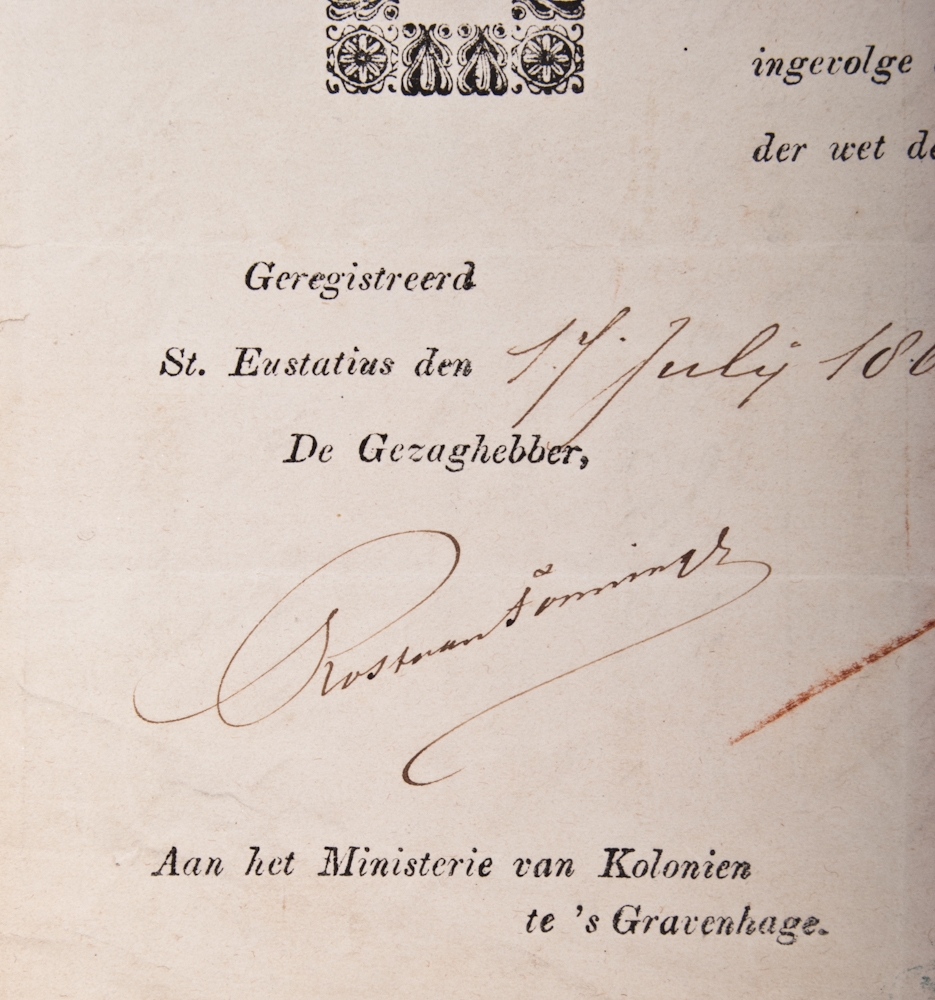 ingevolge
der wet de
Geregistreerd
St. Eustatius den 17 July 186
De Gezaghebber,
Rost van Tonningen
Aan het Ministerie van Kolonien
te 's Gravenhage.